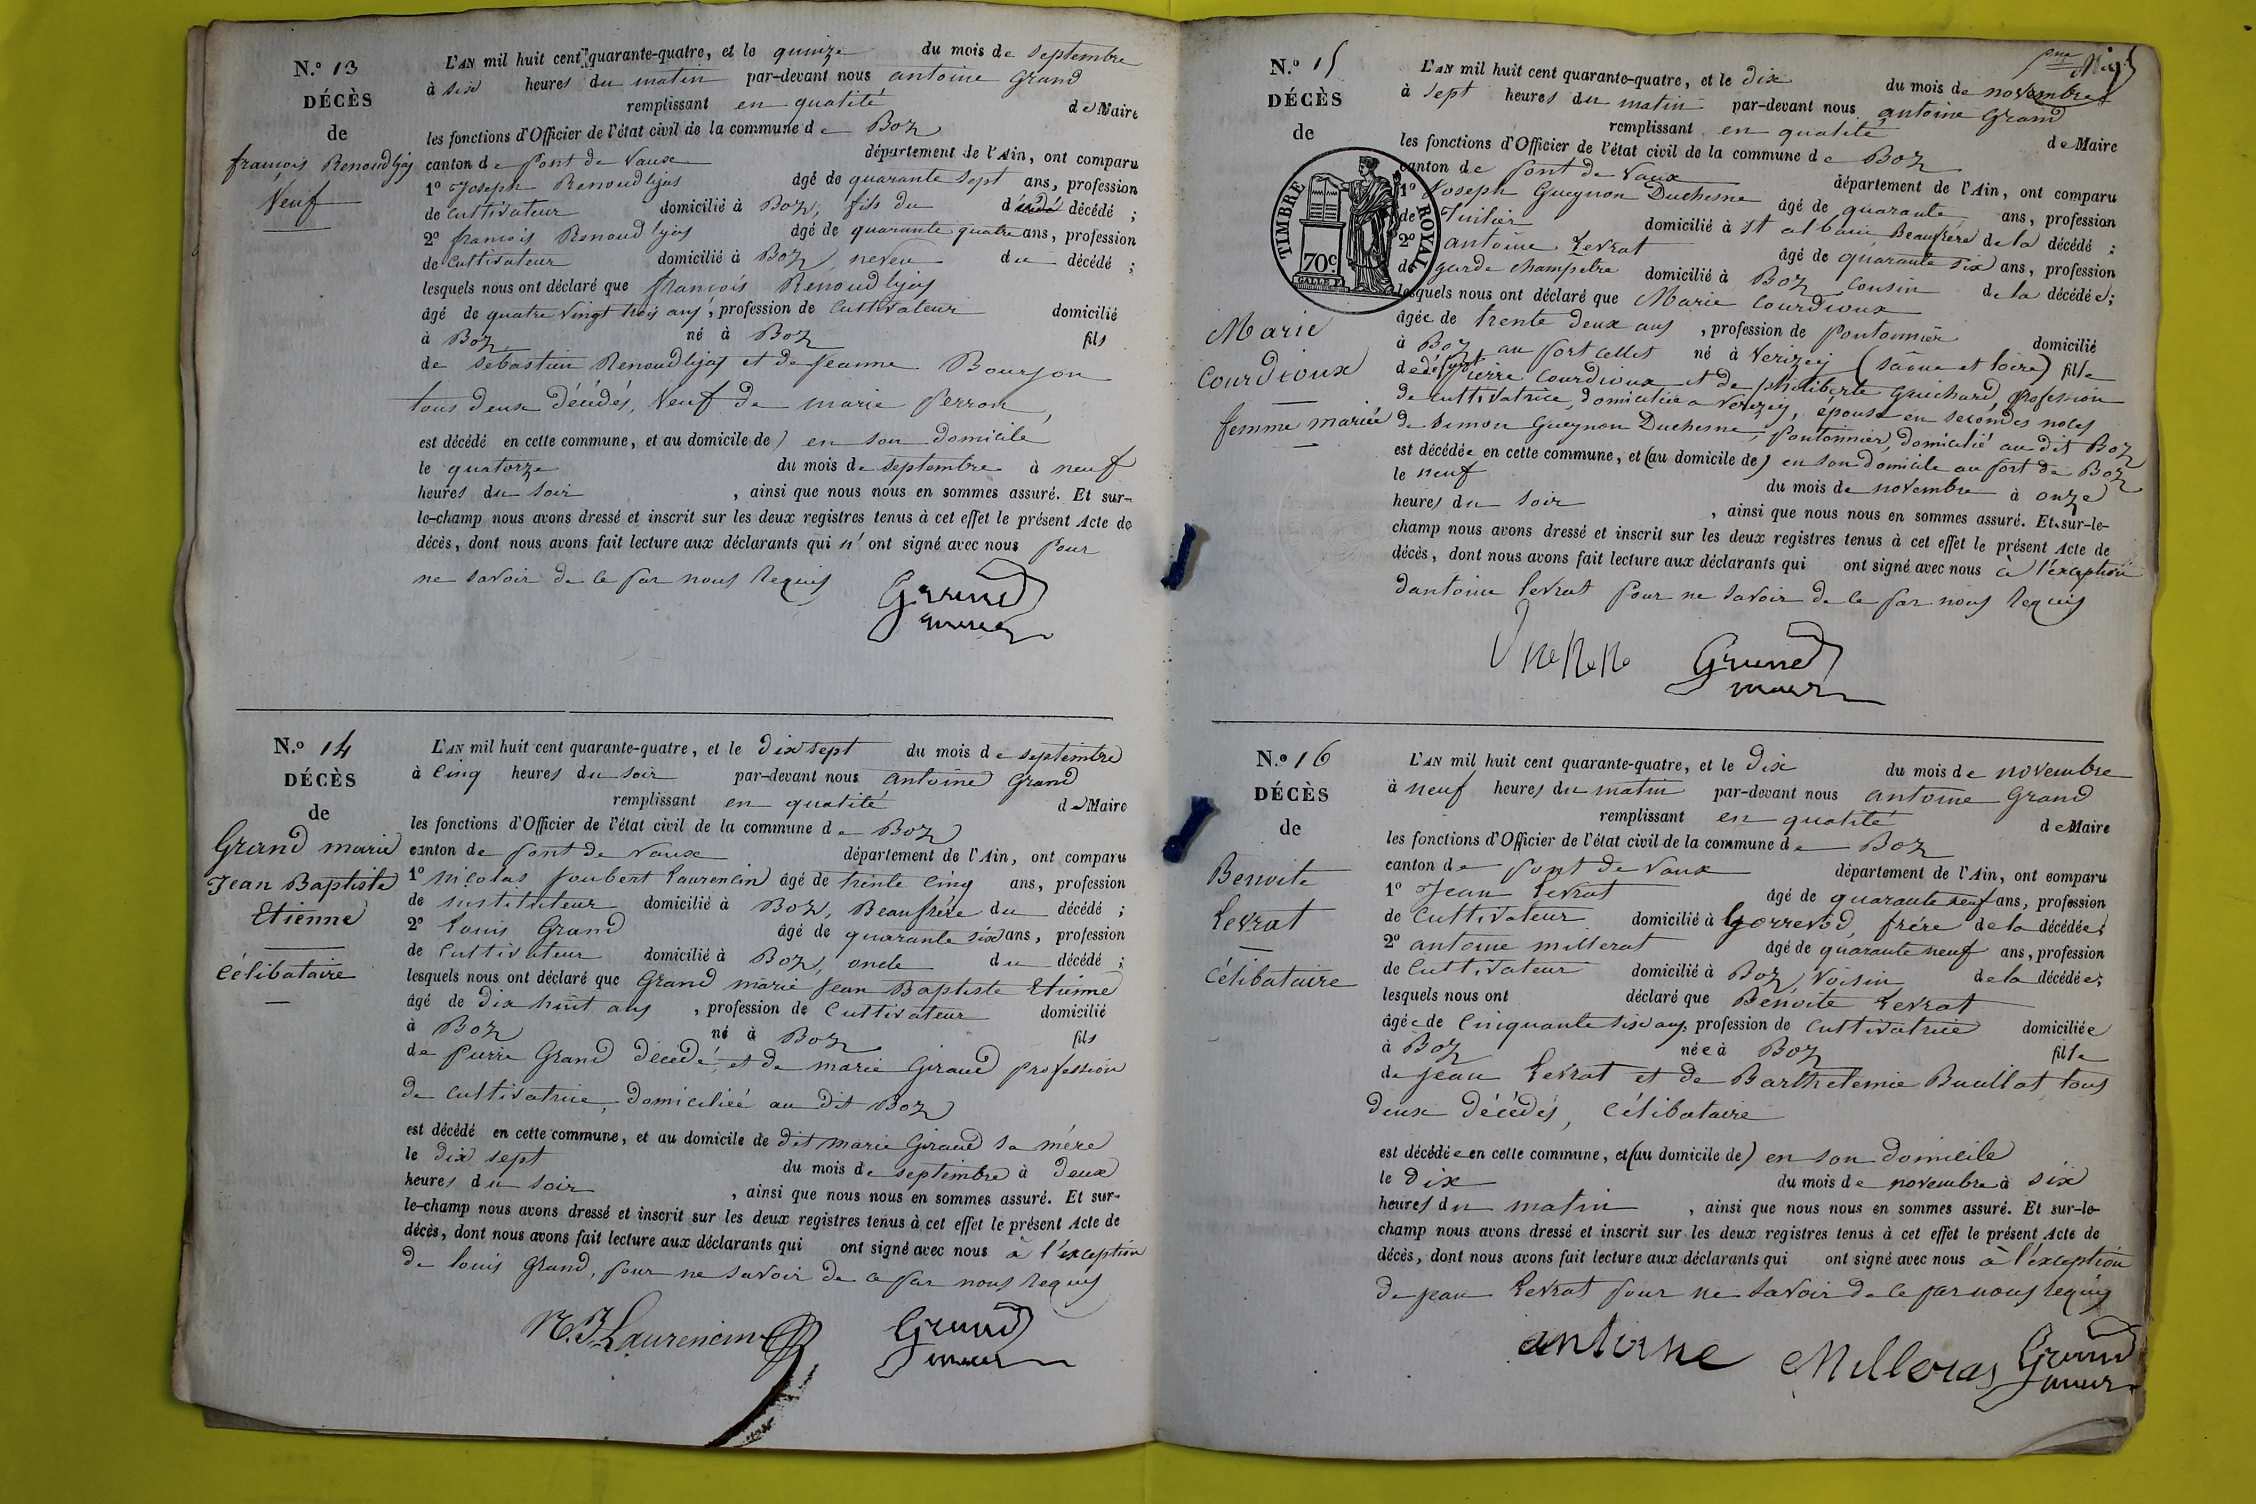 N.º 13
DÉCÈS
de
françois Renoud lyas
Veuf
L'AN mil huit cent quarante-quatre, et le quinze du mois de septembre
à six heures du matin par-devant nous antoine Grand
remplissant en qualité de Maire
les fonctions d'Officier de l'état civil de la commune de Boz
canton de pont de Vaux département de l'Ain, ont comparu
1º Joseph Renoud lyas âgé de quarante sept ans, profession
de cultivateur domicilié à Boz, fils du décédé ;
2º françois Renoud lyas âgé de quarante quatre ans, profession
de cultivateur domicilié à Boz, neveu du décédé ;
lesquels nous ont déclaré que françois Renoud lyas
âgé de quatre vingt trois ans, profession de cultivateur domicilié
à Boz né à Boz fils
de sebastien Renoud lyas et de jeanne Bourjon
tous deux décédés, Veuf de marie perron,
est décédé en cette commune, et au domicile de) en son domicile
le quatorze du mois de septembre à neuf
heures du soir , ainsi que nous nous en sommes assuré. Et sur-
le-champ nous avons dressé et inscrit sur les deux registres tenus à cet effet le présent Acte de
décès, dont nous avons fait lecture aux déclarants qui n'ont signé avec nous pour
ne savoir de ce par nous requis
Grand
maire
N.º 14
DÉCÈS
de
Grand marie
Jean Baptiste
Etienne
célibataire
L'AN mil huit cent quarante-quatre, et le dix sept du mois de septembre
à cinq heures du soir par-devant nous antoine Grand
remplissant en qualité de Maire
les fonctions d'Officier de l'état civil de la commune de Boz
canton de pont de Vaux département de l'Ain, ont comparu
1º nicolas joubert Laurencin âgé de trente cinq ans, profession
de instituteur domicilié à Boz, Beaufrère du décédé ;
2º Louis Grand âgé de quarante six ans, profession
de cultivateur domicilié à Boz, oncle du décédé ;
lesquels nous ont déclaré que Grand marie jean Baptiste Etienne
âgé de dix huit ans , profession de cultivateur domicilié
à Boz né à Boz fils
de pierre Grand décédé, et de marie Giraud profession
de cultivatrice, domiciliée au dit Boz
est décédé en cette commune, et au domicile de dit marie Giraud sa mère
le dix sept du mois de septembre à deux
heures du soir , ainsi que nous nous en sommes assuré. Et sur-
le-champ nous avons dressé et inscrit sur les deux registres tenus à cet effet le présent Acte de
décès, dont nous avons fait lecture aux déclarants qui ont signé avec nous à l'exception
de louis Grand, pour ne savoir de ce par nous requis
N. J. Laurencin
Grand
maire
N.º 15
DÉCÈS
de
TIMBRE ROYAL
70c
Marie
Courdioux
femme mariée
L'AN mil huit cent quarante-quatre, et le dix du mois de novembre
à sept heures du matin par-devant nous antoine Grand
remplissant en qualité de Maire
les fonctions d'Officier de l'état civil de la commune de Boz
canton de pont de Vaux département de l'Ain, ont comparu
1º Joseph Gueynon Duchesne âgé de quarante ans, profession
de Tuilier domicilié à st albain Beaufrère de la décédé ;
2º antoine Levrat âgé de quarante six ans, profession
de garde champetre domicilié à Boz cousin de la décédée ;
lesquels nous ont déclaré que Marie Courdioux
âgée de trente deux ans , profession de pontonnier domicilié
à Boz au port cellet né à Verizey (saône et loire) fille
de pierre Courdioux et de philiberte Guichard, profession
de cultivatrice, domiciliée a Verizey, épouse en secondes noces
de simon Gueynon Duchesne, pontonnier, domicilié au dit Boz
est décédée en cette commune, et (au domicile de) en son domicile au port de Boz
le neuf du mois de novembre à onze
heures du soir , ainsi que nous nous en sommes assuré. Et sur-le-
champ nous avons dressé et inscrit sur les deux registres tenus à cet effet le présent Acte de
décès, dont nous avons fait lecture aux déclarants qui ont signé avec nous à l'exception
dantoine Levrat pour ne savoir de ce par nous requis
Grand
maire
N.º 16
DÉCÈS
de
Benoite
Levrat
Célibataire
L'AN mil huit cent quarante-quatre, et le dix du mois de novembre
à neuf heures du matin par-devant nous antoine Grand
remplissant en qualité de Maire
les fonctions d'Officier de l'état civil de la commune de Boz
canton de pont de Vaux département de l'Ain, ont comparu
1º Jean Levrat âgé de quarante neuf ans, profession
de cultivateur domicilié à Gorrevod, frère de la décédée ;
2º antoine millerat âgé de quarante neuf ans, profession
de cultivateur domicilié à Boz, Voisin de la décédée ;
lesquels nous ont déclaré que Benoite Levrat
âgée de cinquante six ans, profession de cultivatrice domiciliée
à Boz née à Boz fille
de jean Levrat et de Barthelemie Buullat, tous
deux décédés, célibataire
est décédée en cette commune, et (au domicile de) en son domicile
le dix du mois de novembre à six
heures du matin , ainsi que nous nous en sommes assuré. Et sur-le-
champ nous avons dressé et inscrit sur les deux registres tenus à cet effet le présent Acte de
décès, dont nous avons fait lecture aux déclarants qui ont signé avec nous à l'exception
de jean Levrat pour ne savoir de ce par nous requis
antoine Milleras
Grand
maire